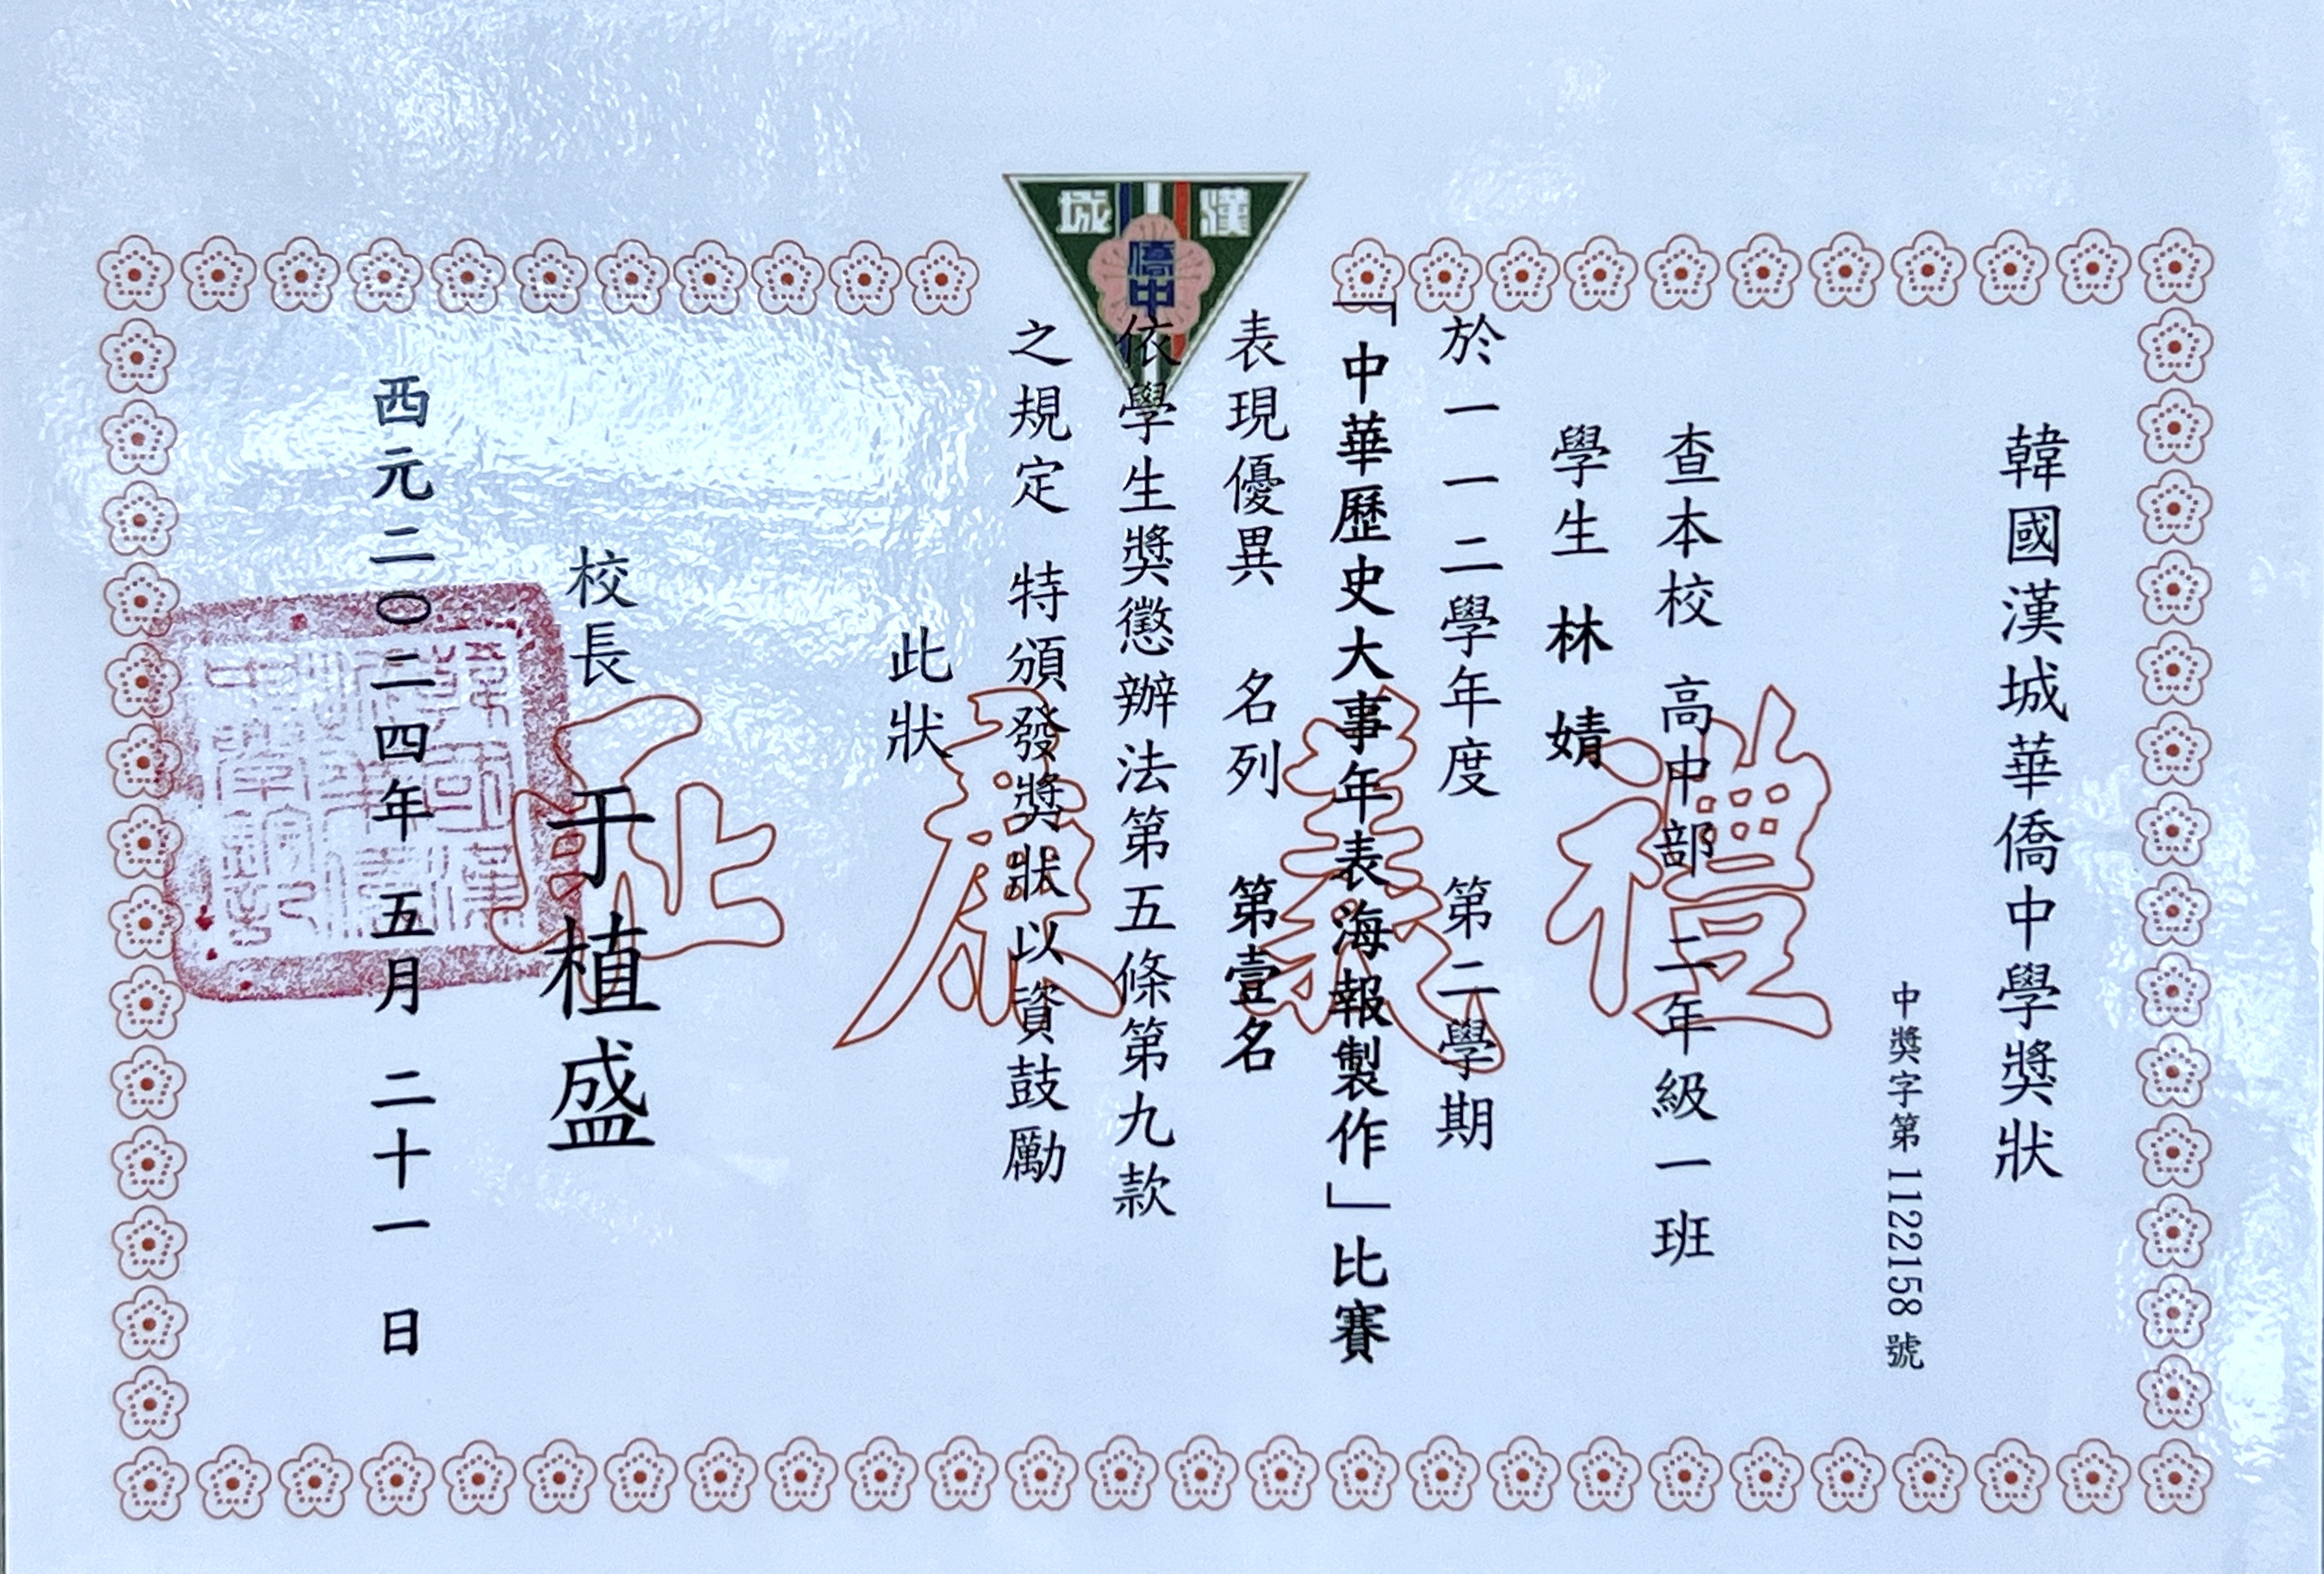 漢城
僑中
韓國漢城華僑中學獎狀
中獎字第1122158號
查本校 高中部 二年級一班
學生 林婧
於一一二學年度 第二學期
「中華歷史大事年表海報製作」比賽
表現優異 名列 第壹名
依學生獎懲辦法第五條第九款
之規定 特頒發獎狀以資鼓勵
此狀
校長 于植盛
西元二〇二四年 五月 二十一 日
禮義廉恥